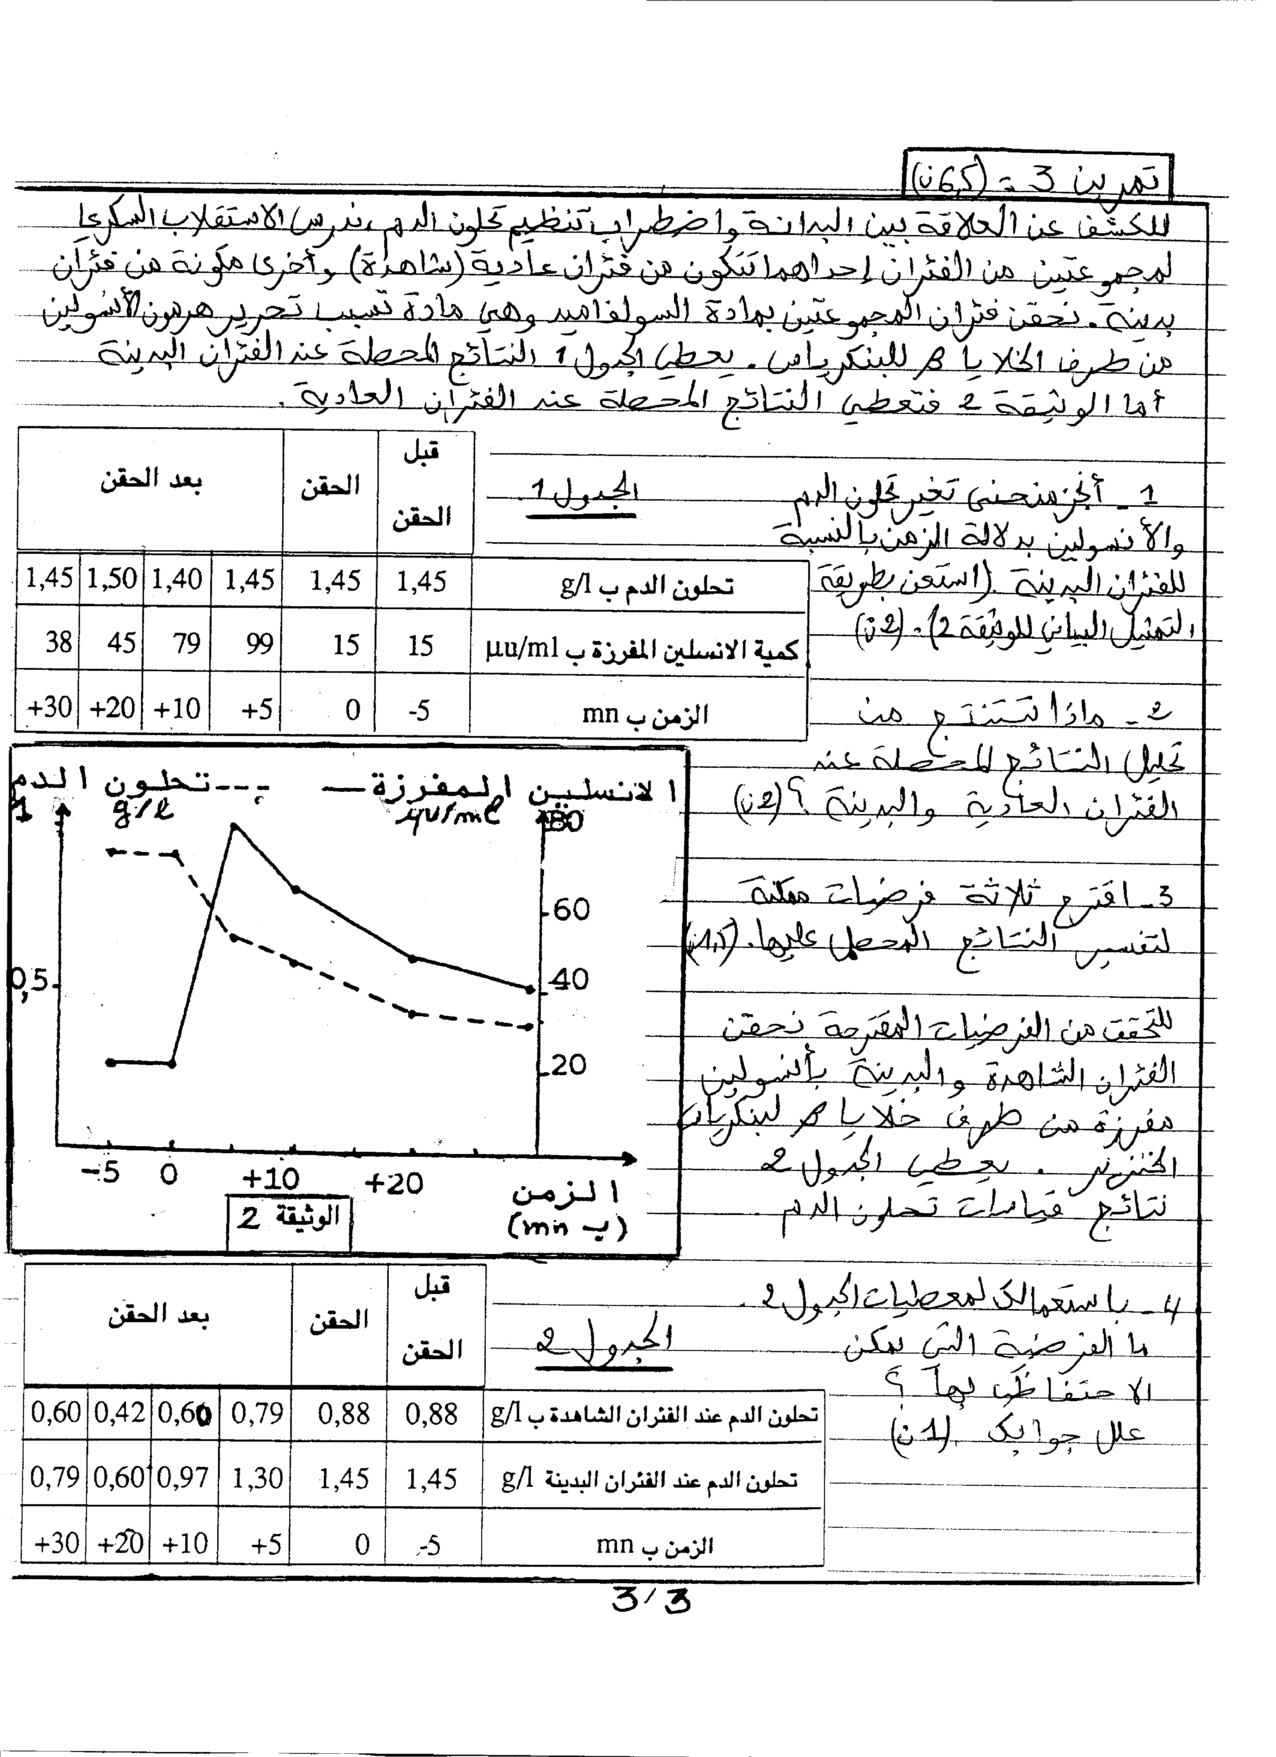 تمرين 3 = (6,5 ن)
للكشف عن العلاقة بين البدانة واضطراب تنظيم تحلون الدم، ندرس الاستقلاب السكري
لمجموعتين من الفئران إحداهما تتكون من فئران عادية (شاهدة) وأخرى مكونة من فئران
بدينة. نحقن فئران المجموعتين بمادة السولفاميد وهي مادة تسبب تحرير هرمون الأنسولين
من طرف الخلايا B للبنكرياس. يعطي الجدول 1 النتائج المحصلة عند الفئران البدينة
أما الوثيقة 2 فتعطي النتائج المحصلة عند الفئران العادية.
1 - أنجز منحنى تغير تحلون الدم
والأنسولين بدلالة الزمن بالنسبة
للفئران البدينة. (استعن بطريقة
التمثيل البياني للوثيقة 2). (2ن)
الجدول 1.
قبل الحقن | الحقن | بعد الحقن
تحلون الدم ب g/l | 1,45 | 1,45 | 1,45 | 1,40 | 1,50 | 1,45
كمية الانسلين المفرزة ب µu/ml | 15 | 15 | 99 | 79 | 45 | 38
الزمن ب mn | -5 | 0 | +5 | +10 | +20 | +30
2 - ماذا تستنتج من
تحليل النتائج المحصلة عند
الفئران العادية والبدينة ؟ (2ن)
3 - اقترح ثلاثة فرضيات ممكنة
لتفسير النتائج المحصل عليها. (1,5ن)
الانسلين المفرزة — --- تحلون الدم
µU/ml g/l
1
0,5
80
60
40
20
-5 0 +10 +20
الزمن
(ب mn)
الوثيقة 2
للتحقق من الفرضيات المقترحة نحقن
الفئران الشاهدة والبدينة بأنسولين
مفرزة من طرف خلايا B لبنكرياس
الخنزير. يعطي الجدول 2
نتائج قياسات تحلون الدم.
4 - باستعمالك لمعطيات الجدول 2.
ما الفرضية التي يمكن
الاحتفاظ بها ؟
علل جوابك. (1ن)
الجدول 2
قبل الحقن | الحقن | بعد الحقن
تحلون الدم عند الفئران الشاهدة ب g/l | 0,88 | 0,88 | 0,79 | 0,60 | 0,42 | 0,60
تحلون الدم عند الفئران البدينة g/l | 1,45 | 1,45 | 1,30 | 0,97 | 0,60 | 0,79
الزمن ب mn | -5 | 0 | +5 | +10 | +20 | +30
3/3